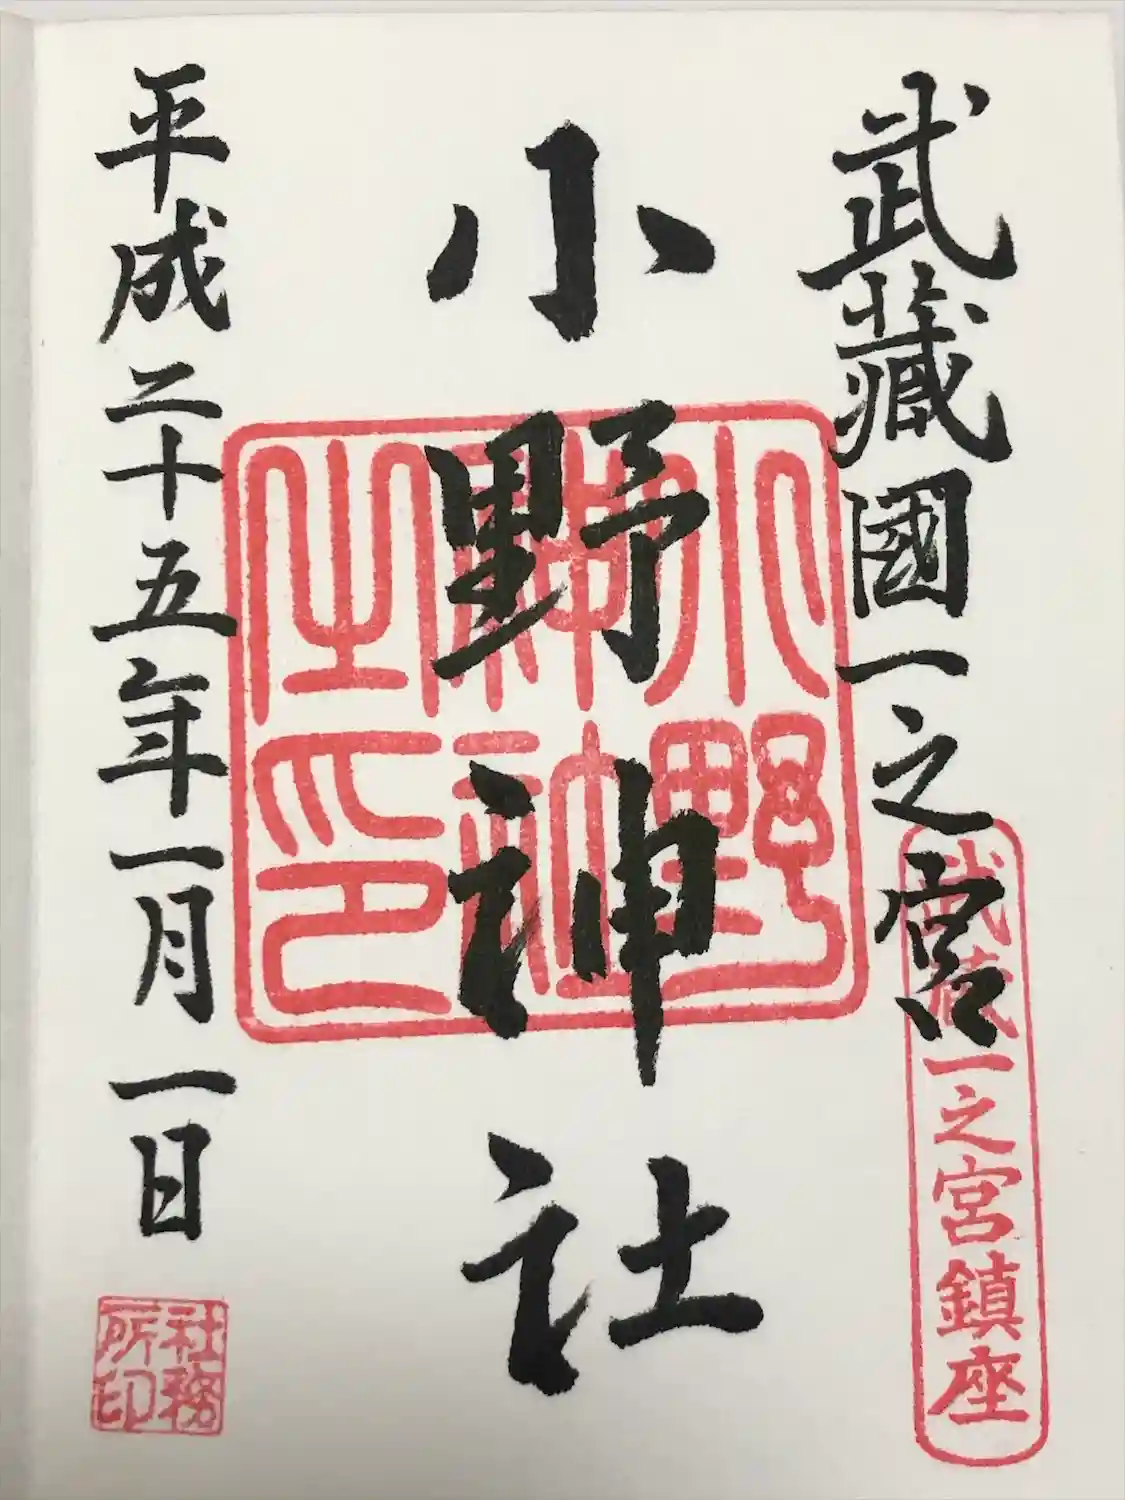 武藏國一之宮
武藏一之宮鎮座
小野神社
小野神社之印
平成二十五年一月一日
社務所印